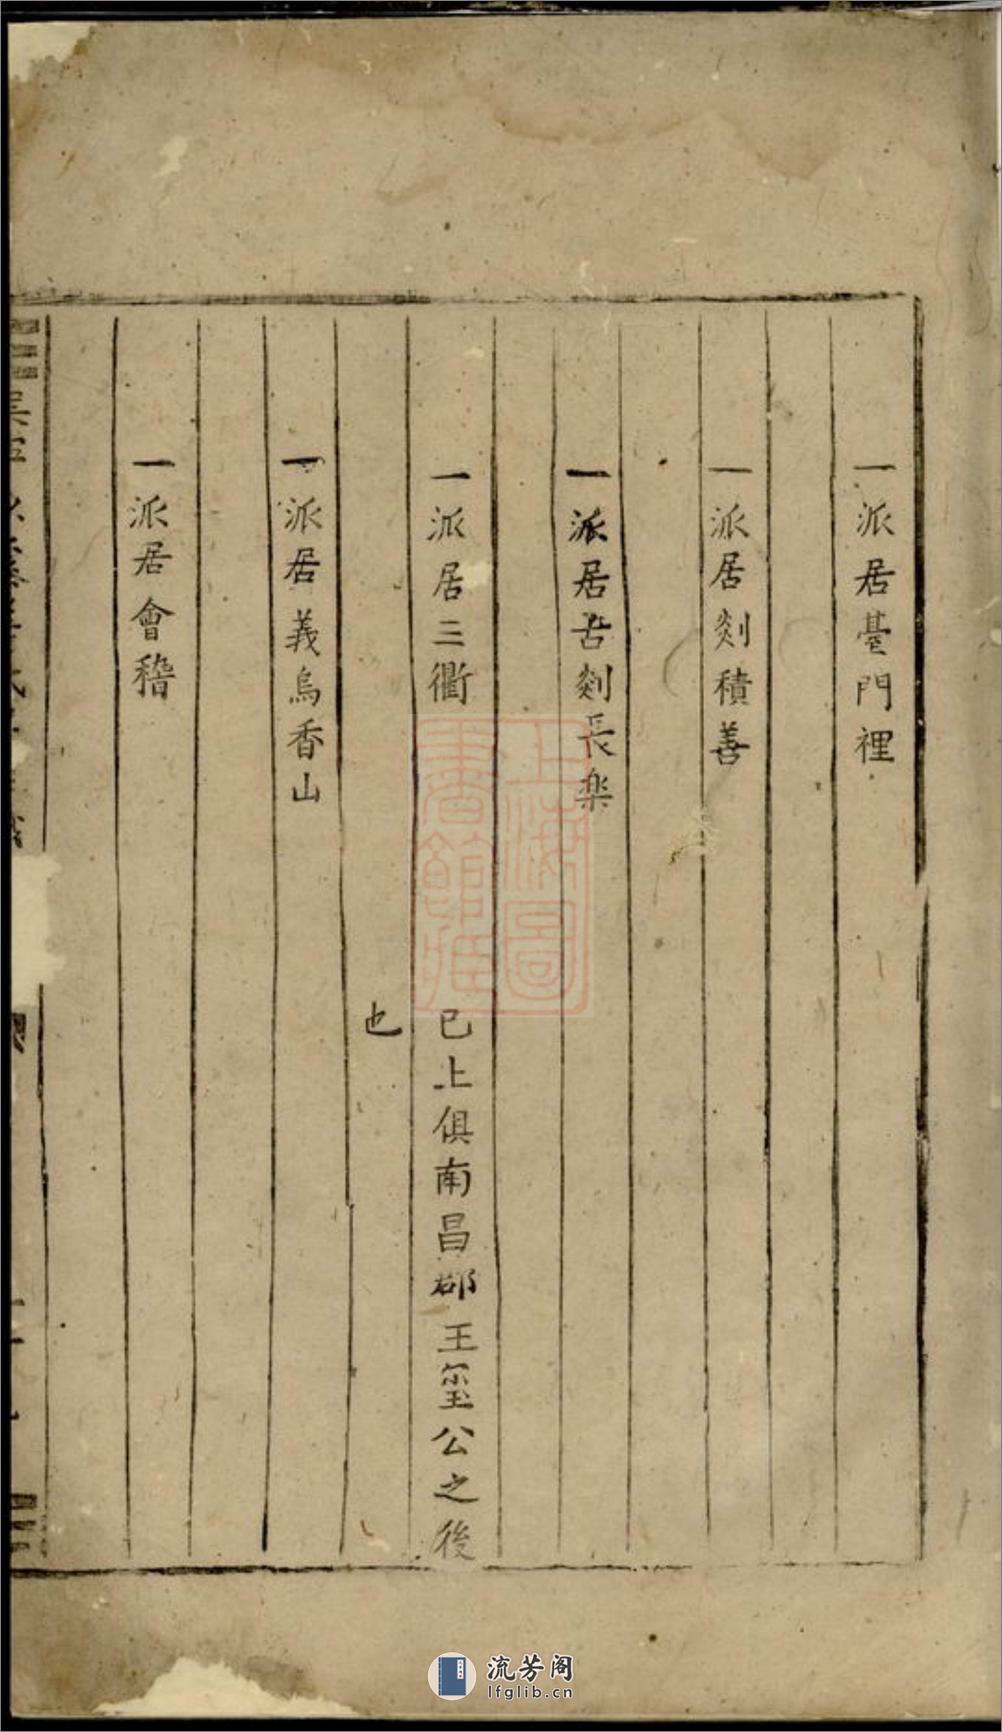 一派居臺門裡
一派居剡積善
一派居古剡長楽
一派居三衢
已上俱南昌郡王玺公之後
也
一派居義烏香山
一派居會稽
上海圖
書館藏
流芳阁
lfglib.cn